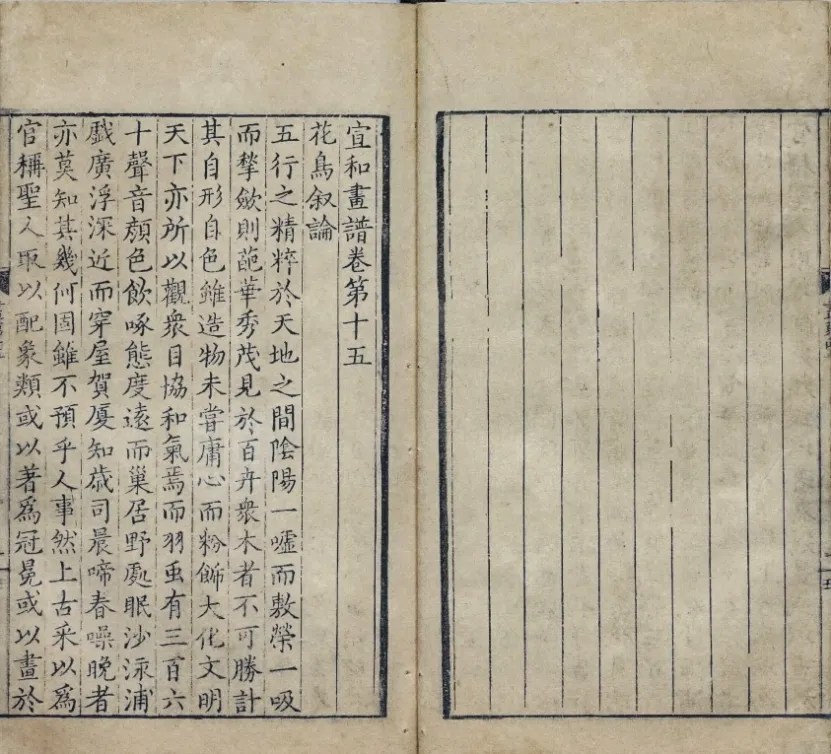 宣和畫譜卷第十五
花鳥叙論
五行之精粹於天地之間陰陽一嘘而敷榮一吸
而揫歛則葩華秀茂見於百卉衆木者不可勝計
其自形自色雖造物未嘗庸心而粉飾大化文明
天下亦所以觀衆目協和氣焉而羽䖝有三百六
十聲音顔色飲啄態度遠而巢居野處眠沙泳浦
戲廣浮深近而穿屋賀厦知歳司晨啼春噪晚者
亦莫知其幾何固雖不預乎人事然上古采以爲
官稱聖人取以配象類或以著爲冠冕或以畫於